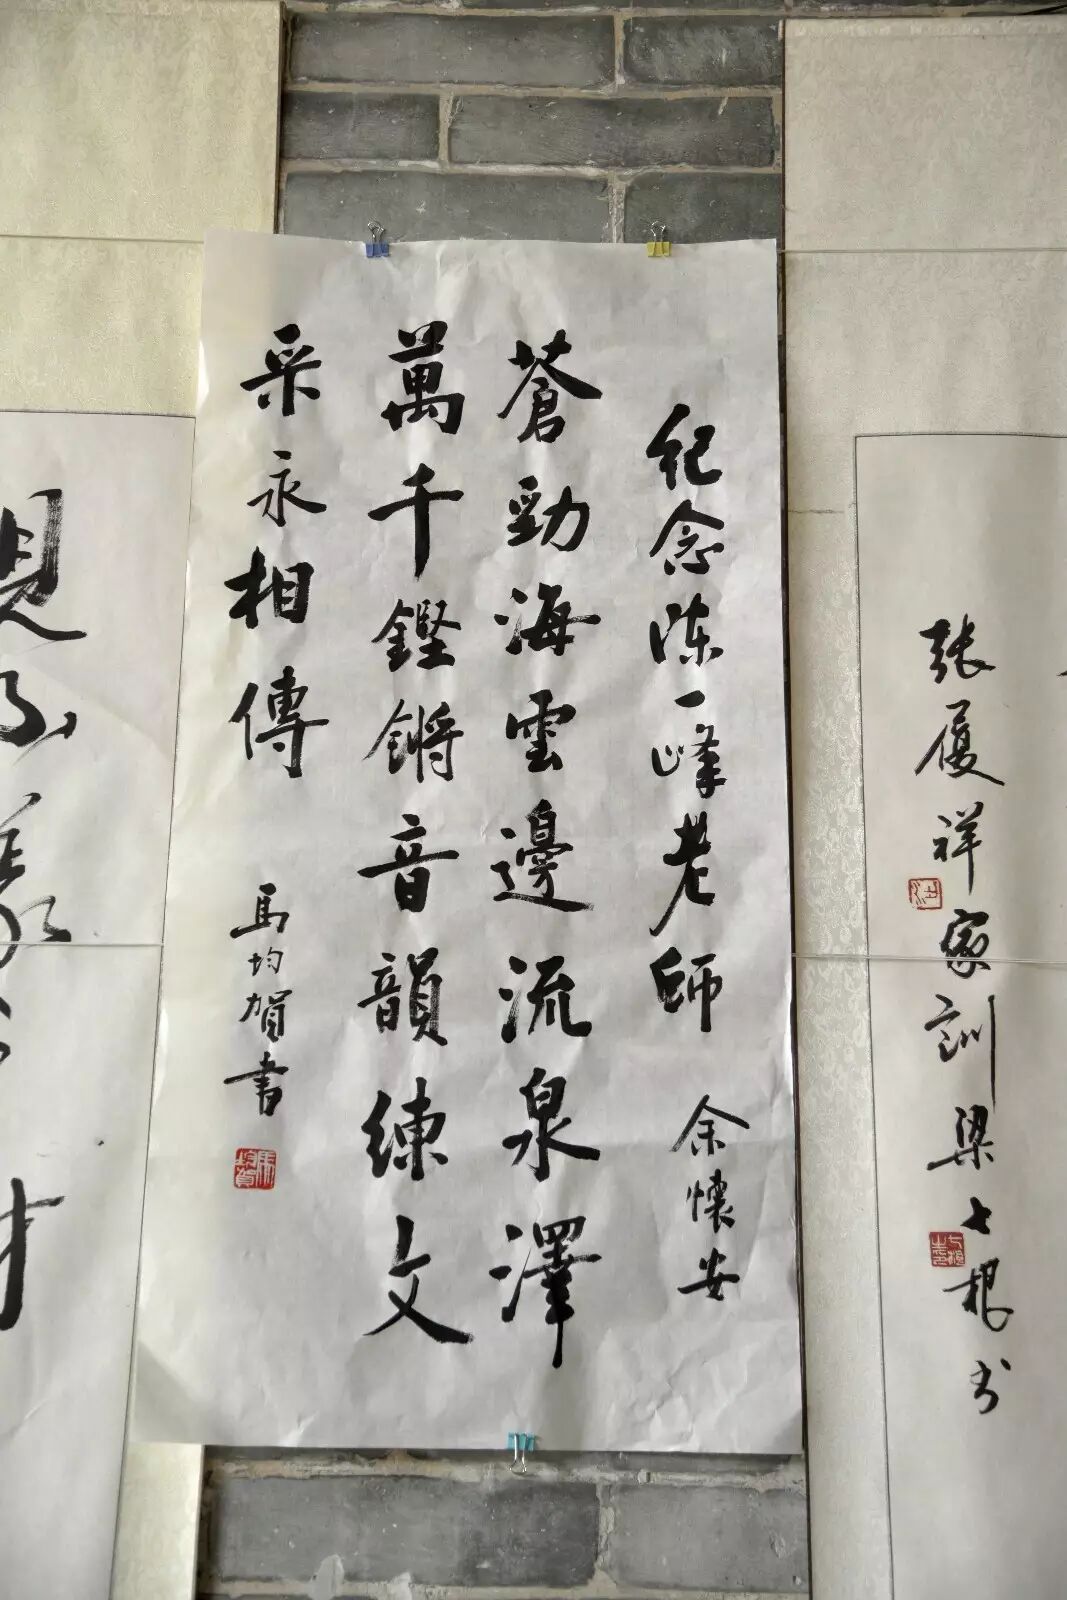 纪念陈一峰老师 余懷安
蒼勁海雲邊流泉澤
萬千鏗鏘音韻練文
采永相傳 馬均賀書
馬均賀
張履祥家訓梁七根书